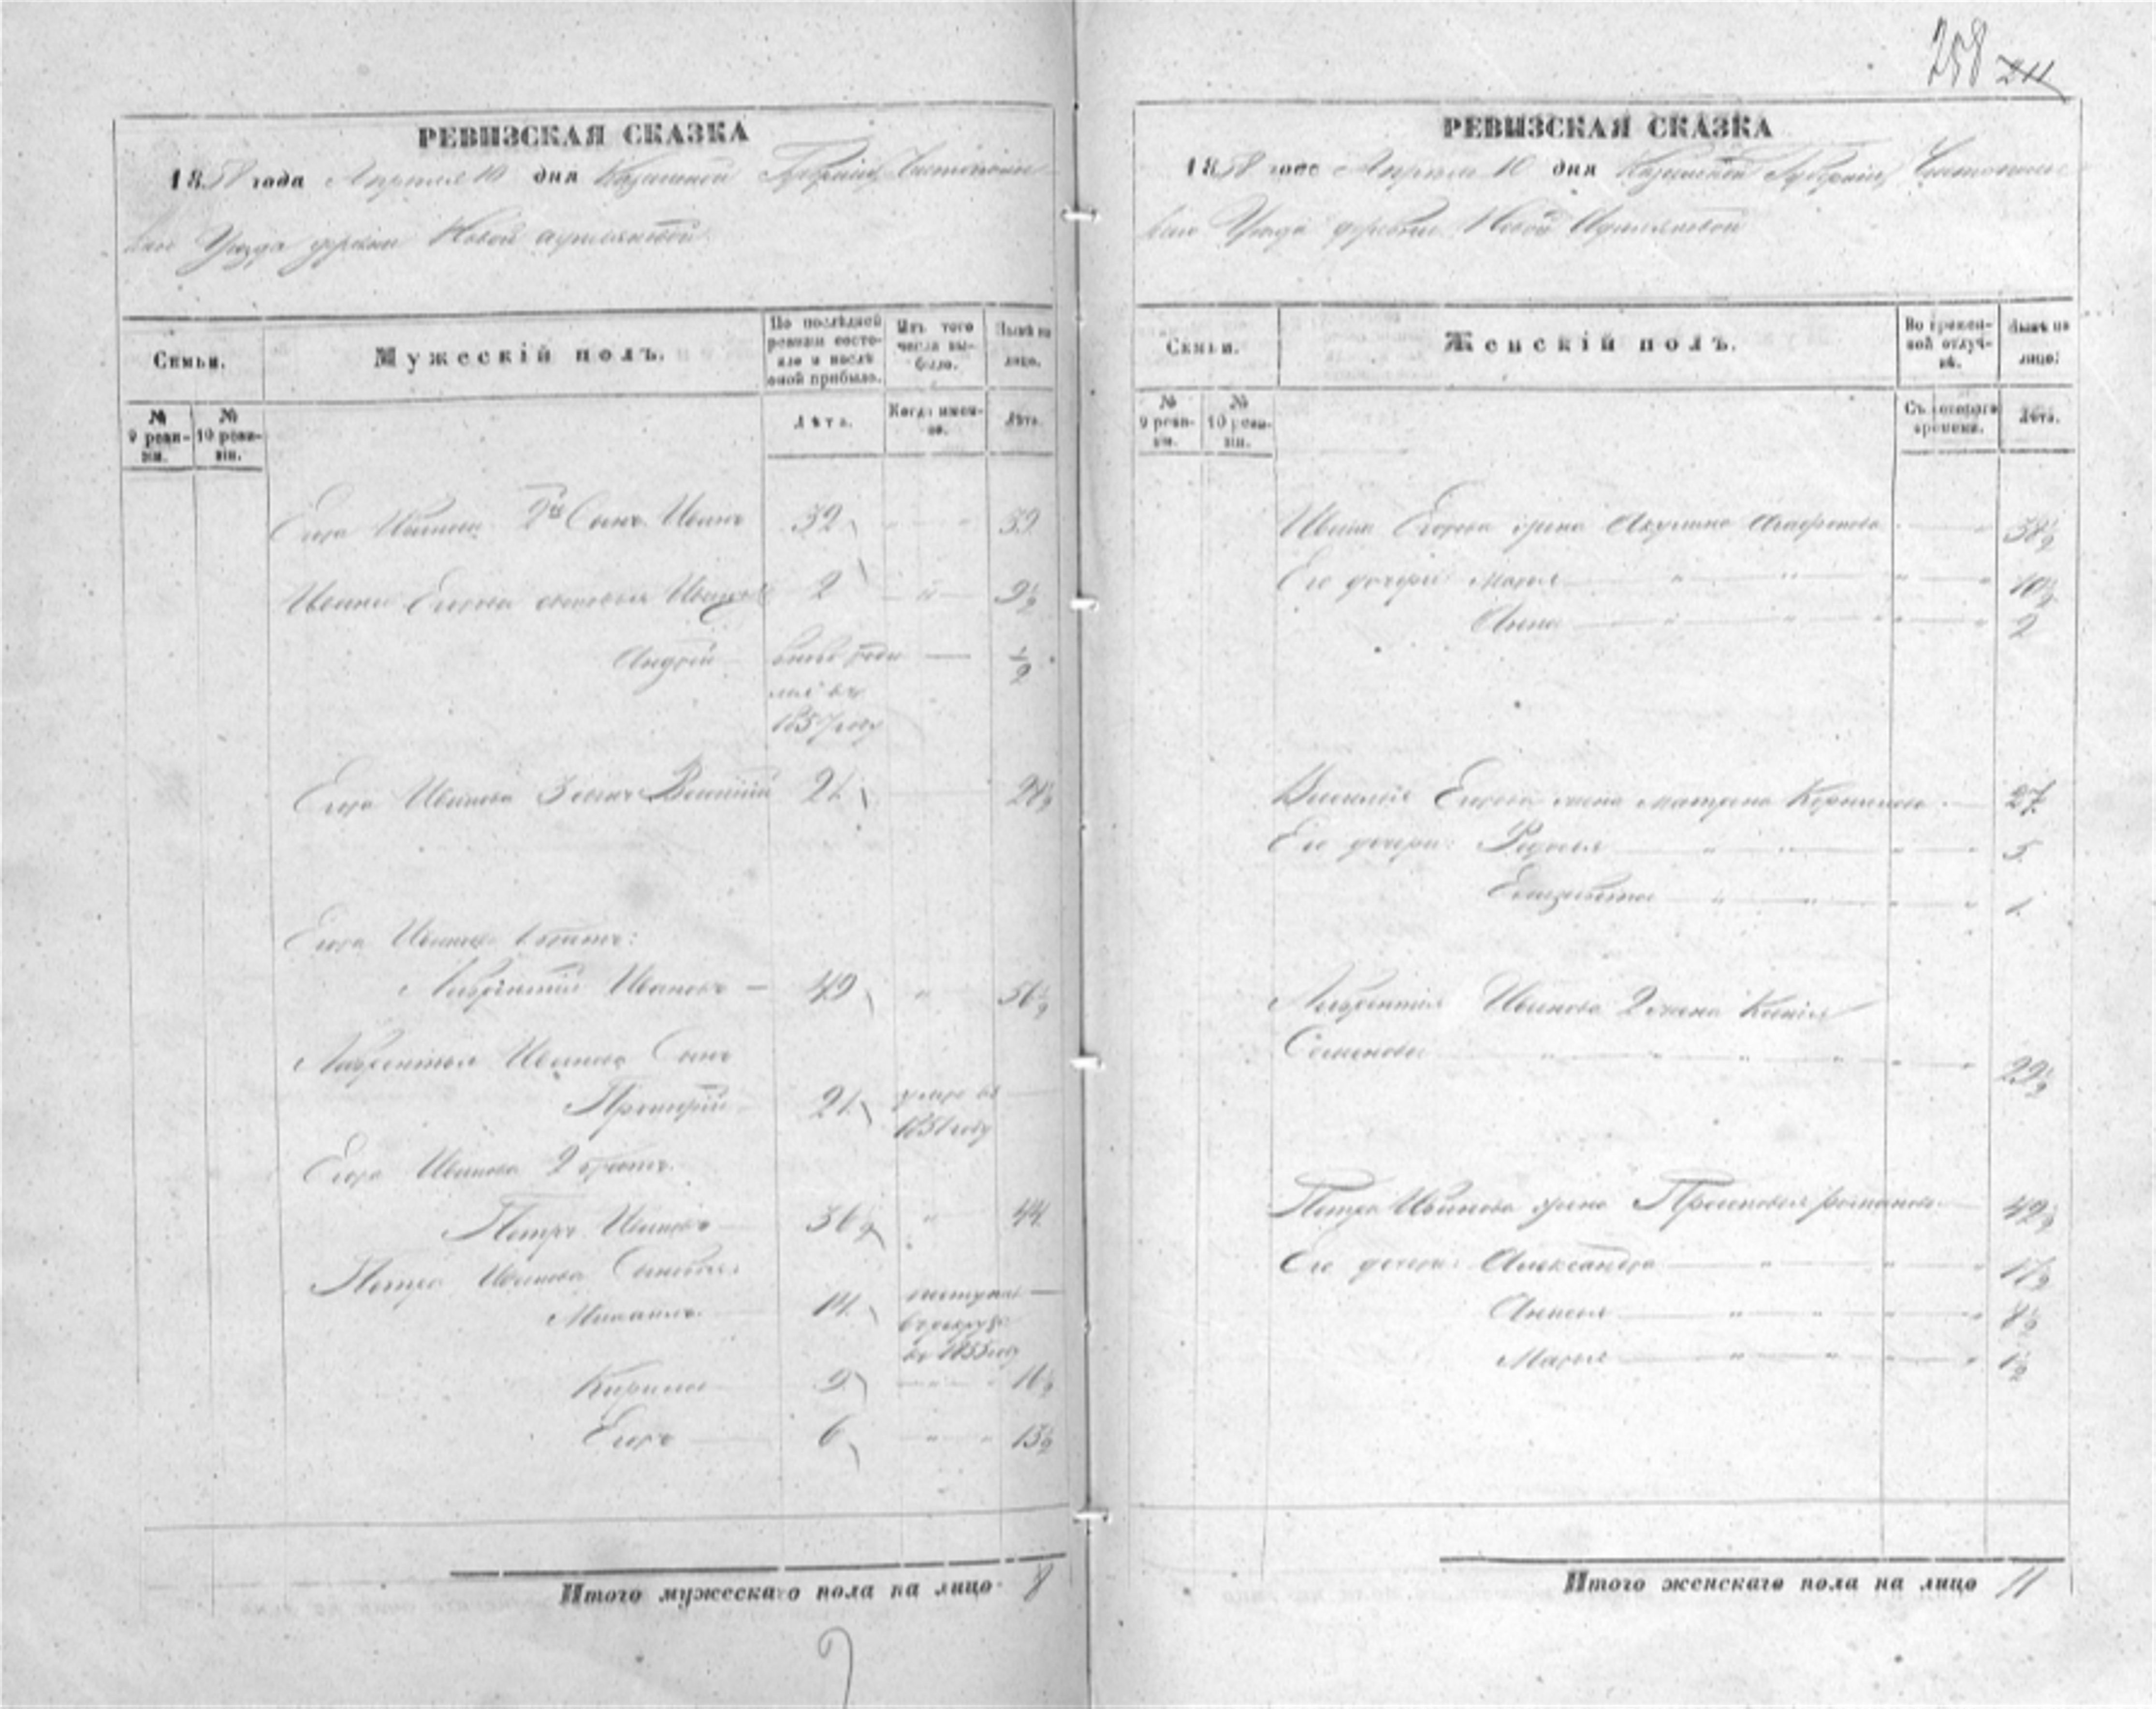 258 211
РЕВИЗСКАЯ СКАЗКА
1858 года Апреля 10 дня Казанской Губернии, Чистополь
скаго Уезда деревни Новой
Семьи.
Мужескій полъ.
По послѣдней ревизіи состояло и послѣ оной прибыло.
Изъ того числа выбыло.
Нынѣ на лицо.
№ 9 ревизіи.
№ 10 ревизіи.
Лѣта.
Когда именно.
Лѣта.
Егора Иванова 2й Сынъ Иванъ 32 39
Ивана Егорова сыновья Иванъ 2 9½
Андрей вновь роди — ½
лся въ
1857 году
Егора Иванова 3 сынъ Василій 21 28½
Егора Иванова 1 братъ:
Лаврентий Ивановъ — 49 56½
Лаврентья Иванова Сынъ
21 умре въ
1851 году
Егора Иванова 2 братъ.
Петръ Ивановъ 36½ 44
Петра Иванова Сыновья
Михаилъ 14 поступил —
в рекруты
въ 1855 году
Кирила 9 16½
Егоръ 6 13½
Итого мужескаго пола на лицо 8
РЕВИЗСКАЯ СКАЗКА
1858 года Апреля 10 дня Казанской Губернии, Чистополь
скаго Уезда деревни Новой
Семьи.
Женскій полъ.
Во временной отлучкѣ.
Нынѣ на лицо:
№ 9 ревизіи.
№ 10 ревизіи.
Съ котораго времени.
Лѣта.
Ивана Егорова жена Акулина 38½
Его дочери Марья 10½
Анна 2
Василія Егорова жена Матрена 27
Его дочери: Федосья 5
Елизавета 1
Лаврентія Иванова 2 жена Ксенія
Семенова 22½
Петра Иванова жена Прасковья Романова 42½
Его дочери: Александра 17½
Анисья 8½
Марья 1½
Итого женскаго пола на лицо 11